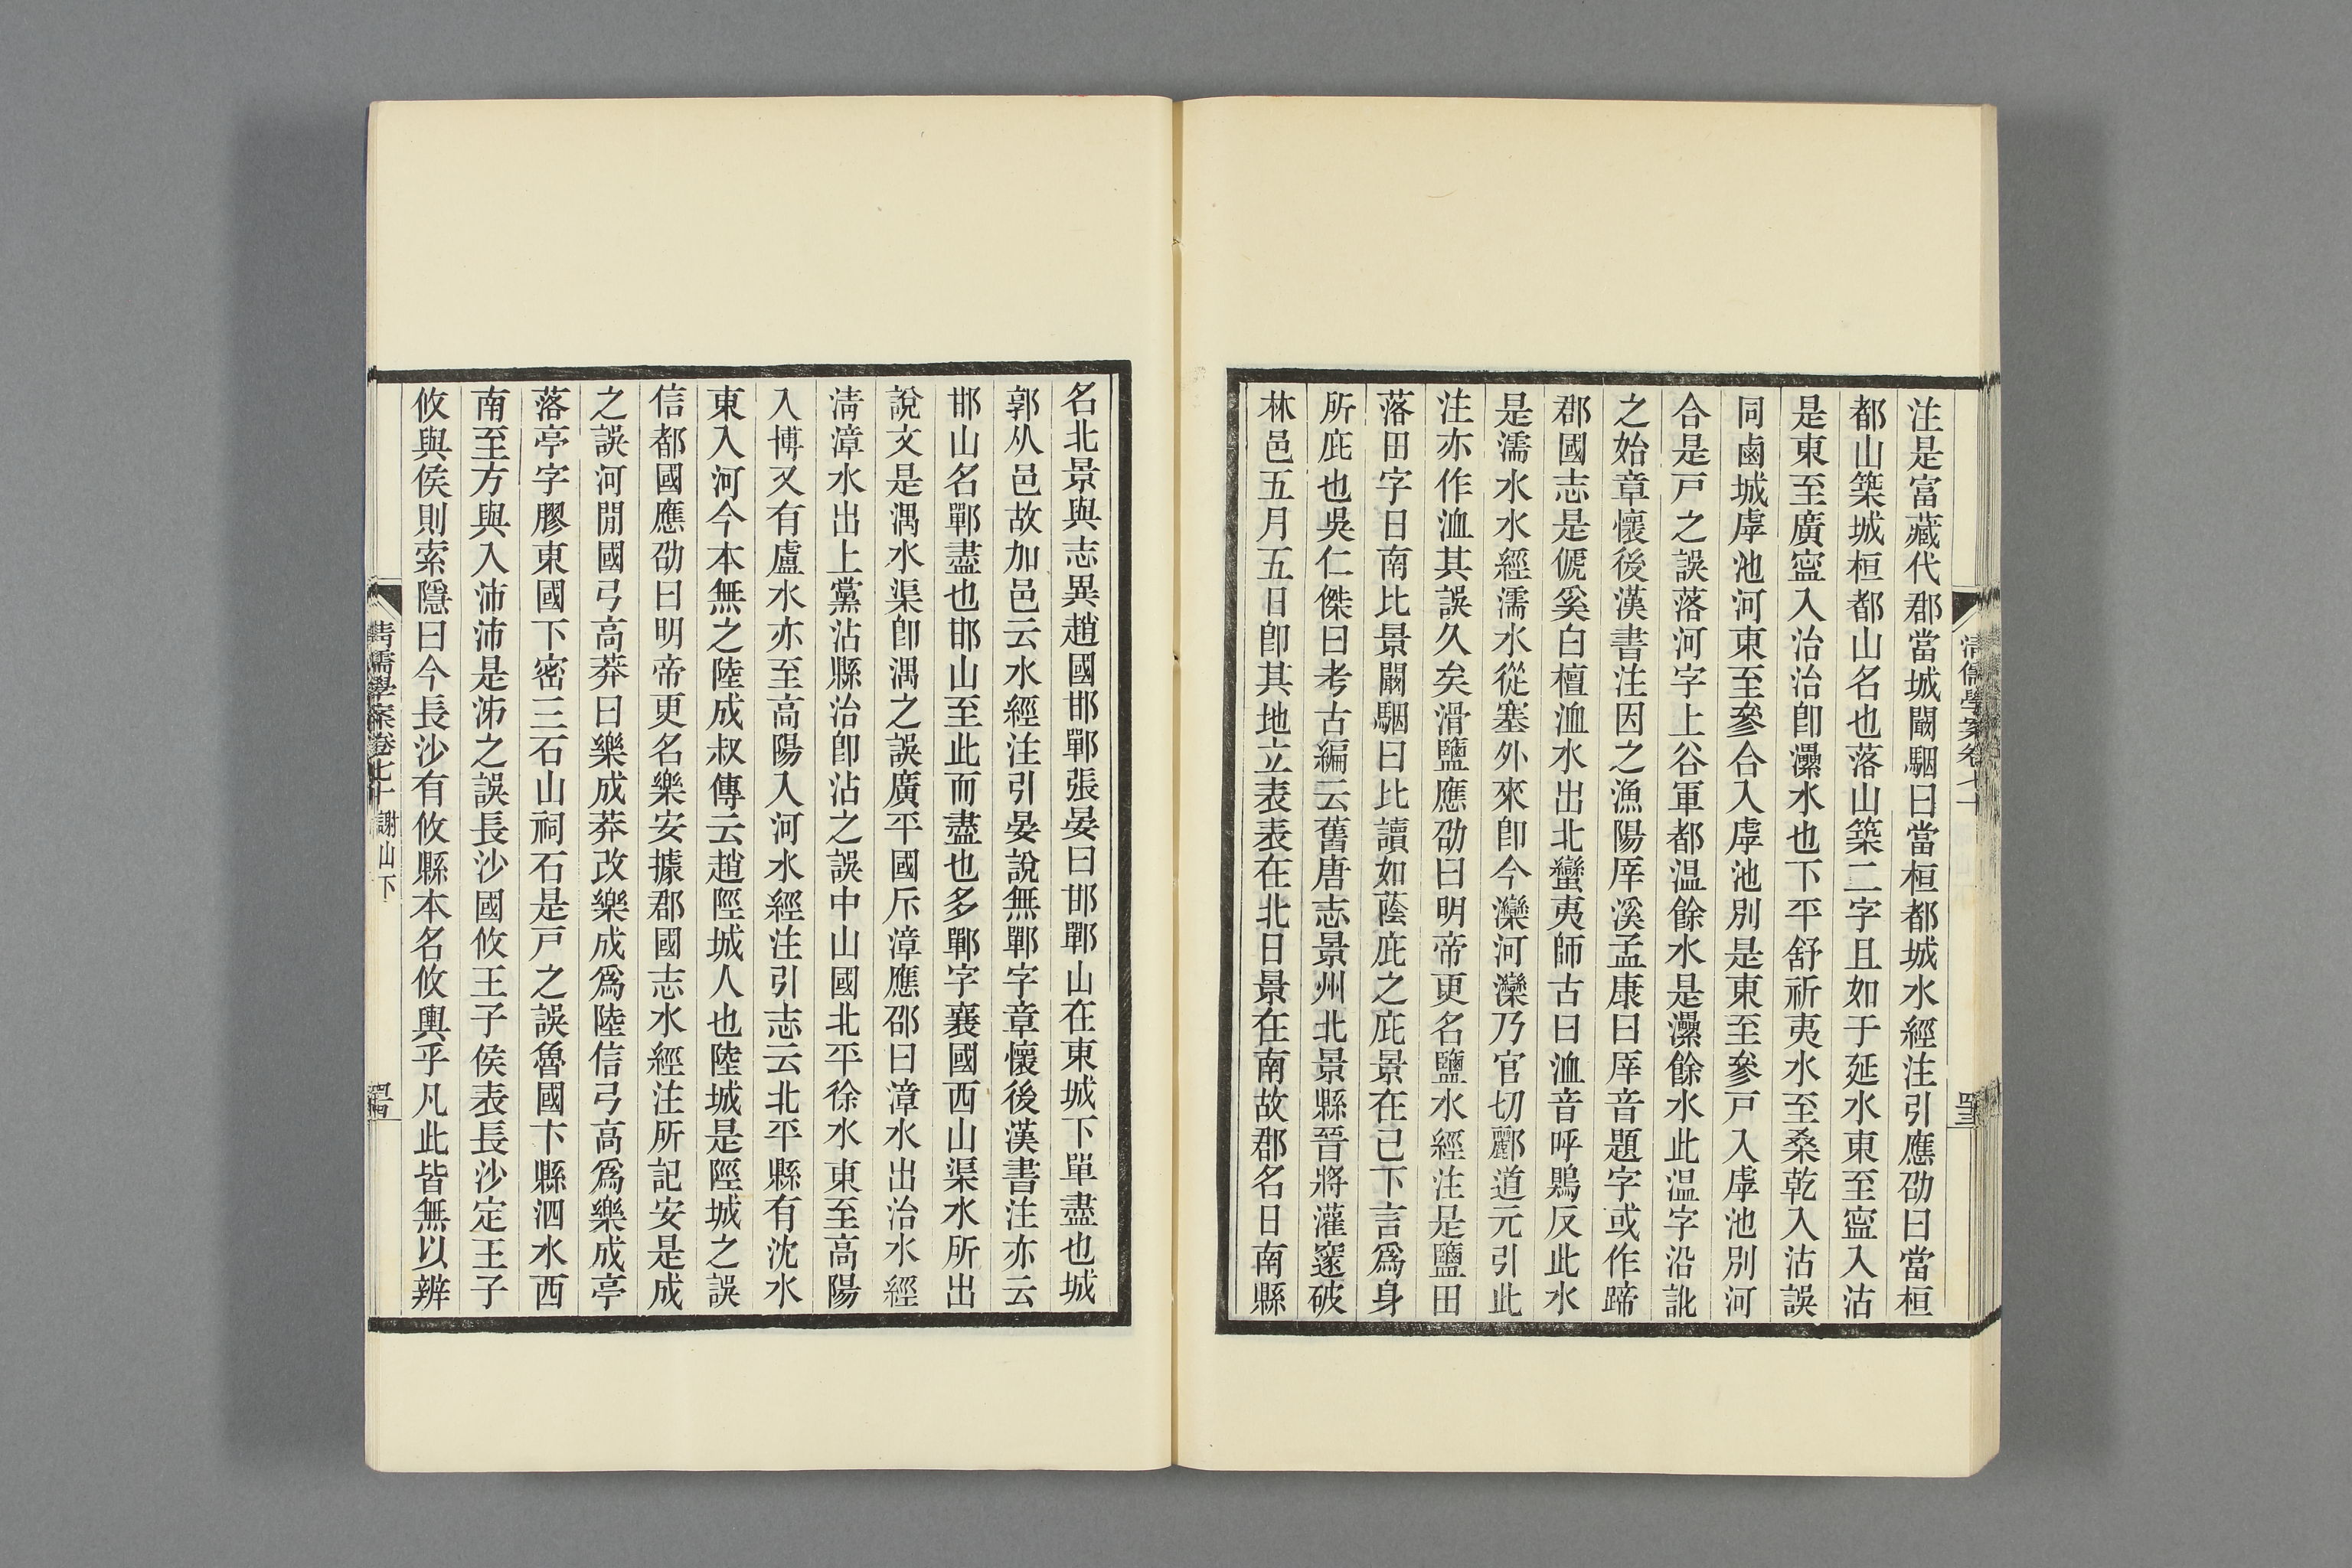 注是富藏代郡當城闞駰曰當桓都城水經注引應劭曰當桓
都山築城桓都山名也落山築二字且如于延水東至寍入沽
是東至廣寍入治治卽㶟水也下平舒祈夷水至桑乾入沽誤
同鹵城虖池河東至參合入虖池別是東至參戸入虖池別河
合是戸之誤落河字上谷軍都温餘水是㶟餘水此温字沿訛
之始章懷後漢書注因之漁陽厗溪孟康曰厗音題字或作蹄
郡國志是傂奚白檀洫水出北蠻夷師古曰洫音呼鶪反此水
是濡水水經濡水從塞外來卽今灤河灤乃官切酈道元引此
注亦作洫其誤久矣滑鹽應劭曰明帝更名鹽水經注是鹽田
落田字日南比景闞駰曰比讀如蔭庇之庇景在已下言爲身
所庇也吳仁傑曰考古編云舊唐志景州北景縣晉將灌邃破
林邑五月五日卽其地立表表在北日景在南故郡名日南縣
清儒學案卷七十
四三
名北景與志異趙國邯鄲張晏曰邯鄲山在東城下單盡也城
郭从邑故加邑云水經注引晏說無鄲字章懷後漢書注亦云
邯山名鄲盡也邯山至此而盡也多鄲字襄國西山渠水所出
說文是湡水渠卽湡之誤廣平國斥漳應邵曰漳水出治水經
淸漳水出上黨沾縣治卽沾之誤中山國北平徐水東至高陽
入博又有盧水亦至高陽入河水經注引志云北平縣有沈水
東入河今本無之陸成叔傳云趙陘城人也陸城是陘城之誤
信都國應劭曰明帝更名樂安據郡國志水經注所記安是成
之誤河閒國弓高莽曰樂成莽改樂成爲陸信弓高爲樂成亭
落亭字膠東國下密三石山祠石是戸之誤魯國卞縣泗水西
南至方與入沛沛是泲之誤長沙國攸王子侯表長沙定王子
攸與侯則索隱曰今長沙有攸縣本名攸輿乎凡此皆無以辨
清儒學案卷七十 謝山下
四四